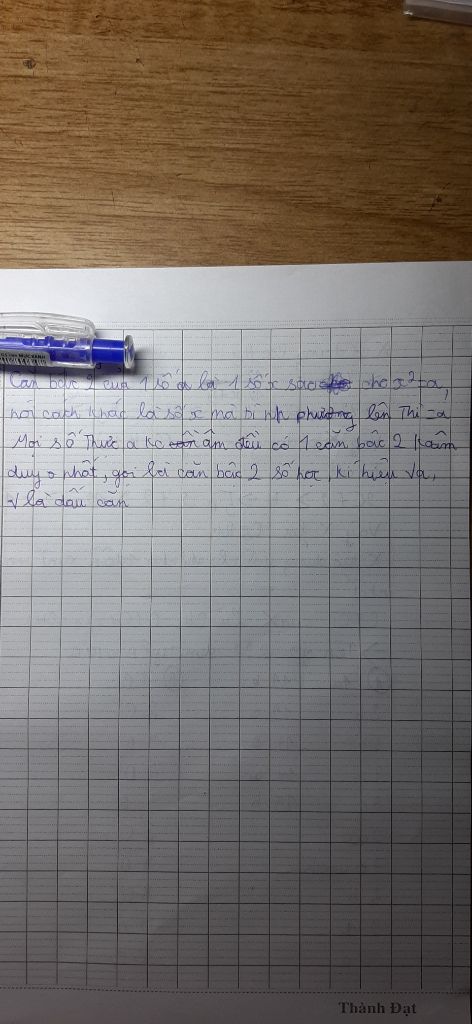 Căn bậc 2 của 1 số a là 1 số x sao cho x²=a,
nói cách khác là số x mà bình phương lên thì =a
Mọi số thực a ko âm đều có 1 căn bậc 2 ko âm
duy nhất, gọi là căn bậc 2 số học, kí hiệu √a,
√ là dấu căn
Thành Đạt